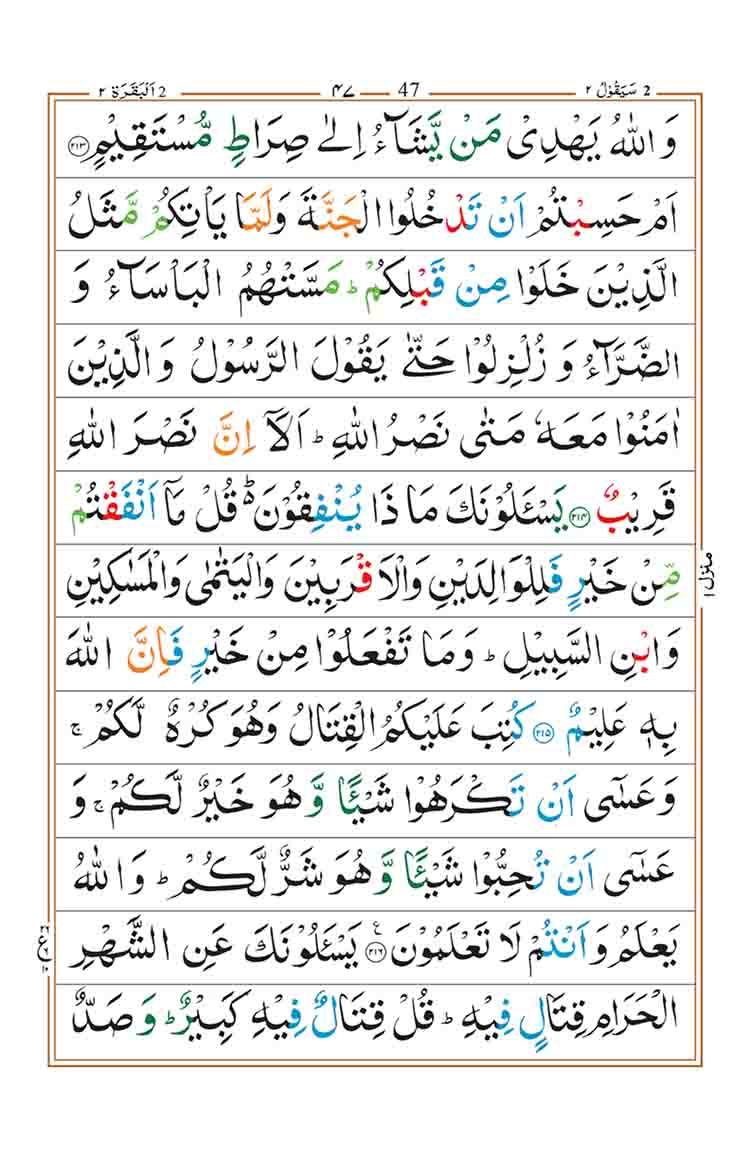 2 سَيَقُوْلُ ٢ 47 ٤٧ 2 اَلْبَقَرَة ٢
وَاللّٰهُ يَهْدِىْ مَنْ يَّشَآءُ اِلٰى صِرَاطٍ مُّسْتَقِيْمٍ ﴿٢١٣﴾
اَمْ حَسِبْتُمْ اَنْ تَدْخُلُوا الْجَنَّةَ وَلَمَّا يَاْتِكُمْ مَّثَلُ
الَّذِيْنَ خَلَوْا مِنْ قَبْلِكُمْ ؕ مَسَّتْهُمُ الْبَاْسَآءُ وَ
الضَّرَّآءُ وَ زُلْزِلُوْا حَتّٰى يَقُوْلَ الرَّسُوْلُ وَالَّذِيْنَ
اٰمَنُوْا مَعَهٗ مَتٰى نَصْرُ اللّٰهِ ؕ اَلَآ اِنَّ نَصْرَ اللّٰهِ
قَرِيْبٌ ﴿٢١٤﴾ يَسْـَٔلُوْنَكَ مَا ذَا يُنْفِقُوْنَ ؕ قُلْ مَآ اَنْفَقْتُمْ
مِّنْ خَيْرٍ فَلِلْوَالِدَيْنِ وَالْاَقْرَبِيْنَ وَالْيَتٰمٰى وَالْمَسٰكِيْنِ
وَابْنِ السَّبِيْلِ ؕ وَمَا تَفْعَلُوْا مِنْ خَيْرٍ فَاِنَّ اللّٰهَ
بِهٖ عَلِيْمٌ ﴿٢١٥﴾ كُتِبَ عَلَيْكُمُ الْقِتَالُ وَهُوَ كُرْهٌ لَّكُمْ ۚ
وَعَسٰٓى اَنْ تَكْرَهُوْا شَيْـًٔا وَّ هُوَ خَيْرٌ لَّكُمْ ۚ وَ
عَسٰٓى اَنْ تُحِبُّوْا شَيْـًٔا وَّ هُوَ شَرٌّ لَّكُمْ ؕ وَاللّٰهُ
يَعْلَمُ وَاَنْتُمْ لَا تَعْلَمُوْنَ ﴿٢١٦﴾ يَسْـَٔلُوْنَكَ عَنِ الشَّهْرِ
الْحَرَامِ قِتَالٍ فِيْهِ ؕ قُلْ قِتَالٌ فِيْهِ كَبِيْرٌ ؕ وَصَدٌّ
منزل ١